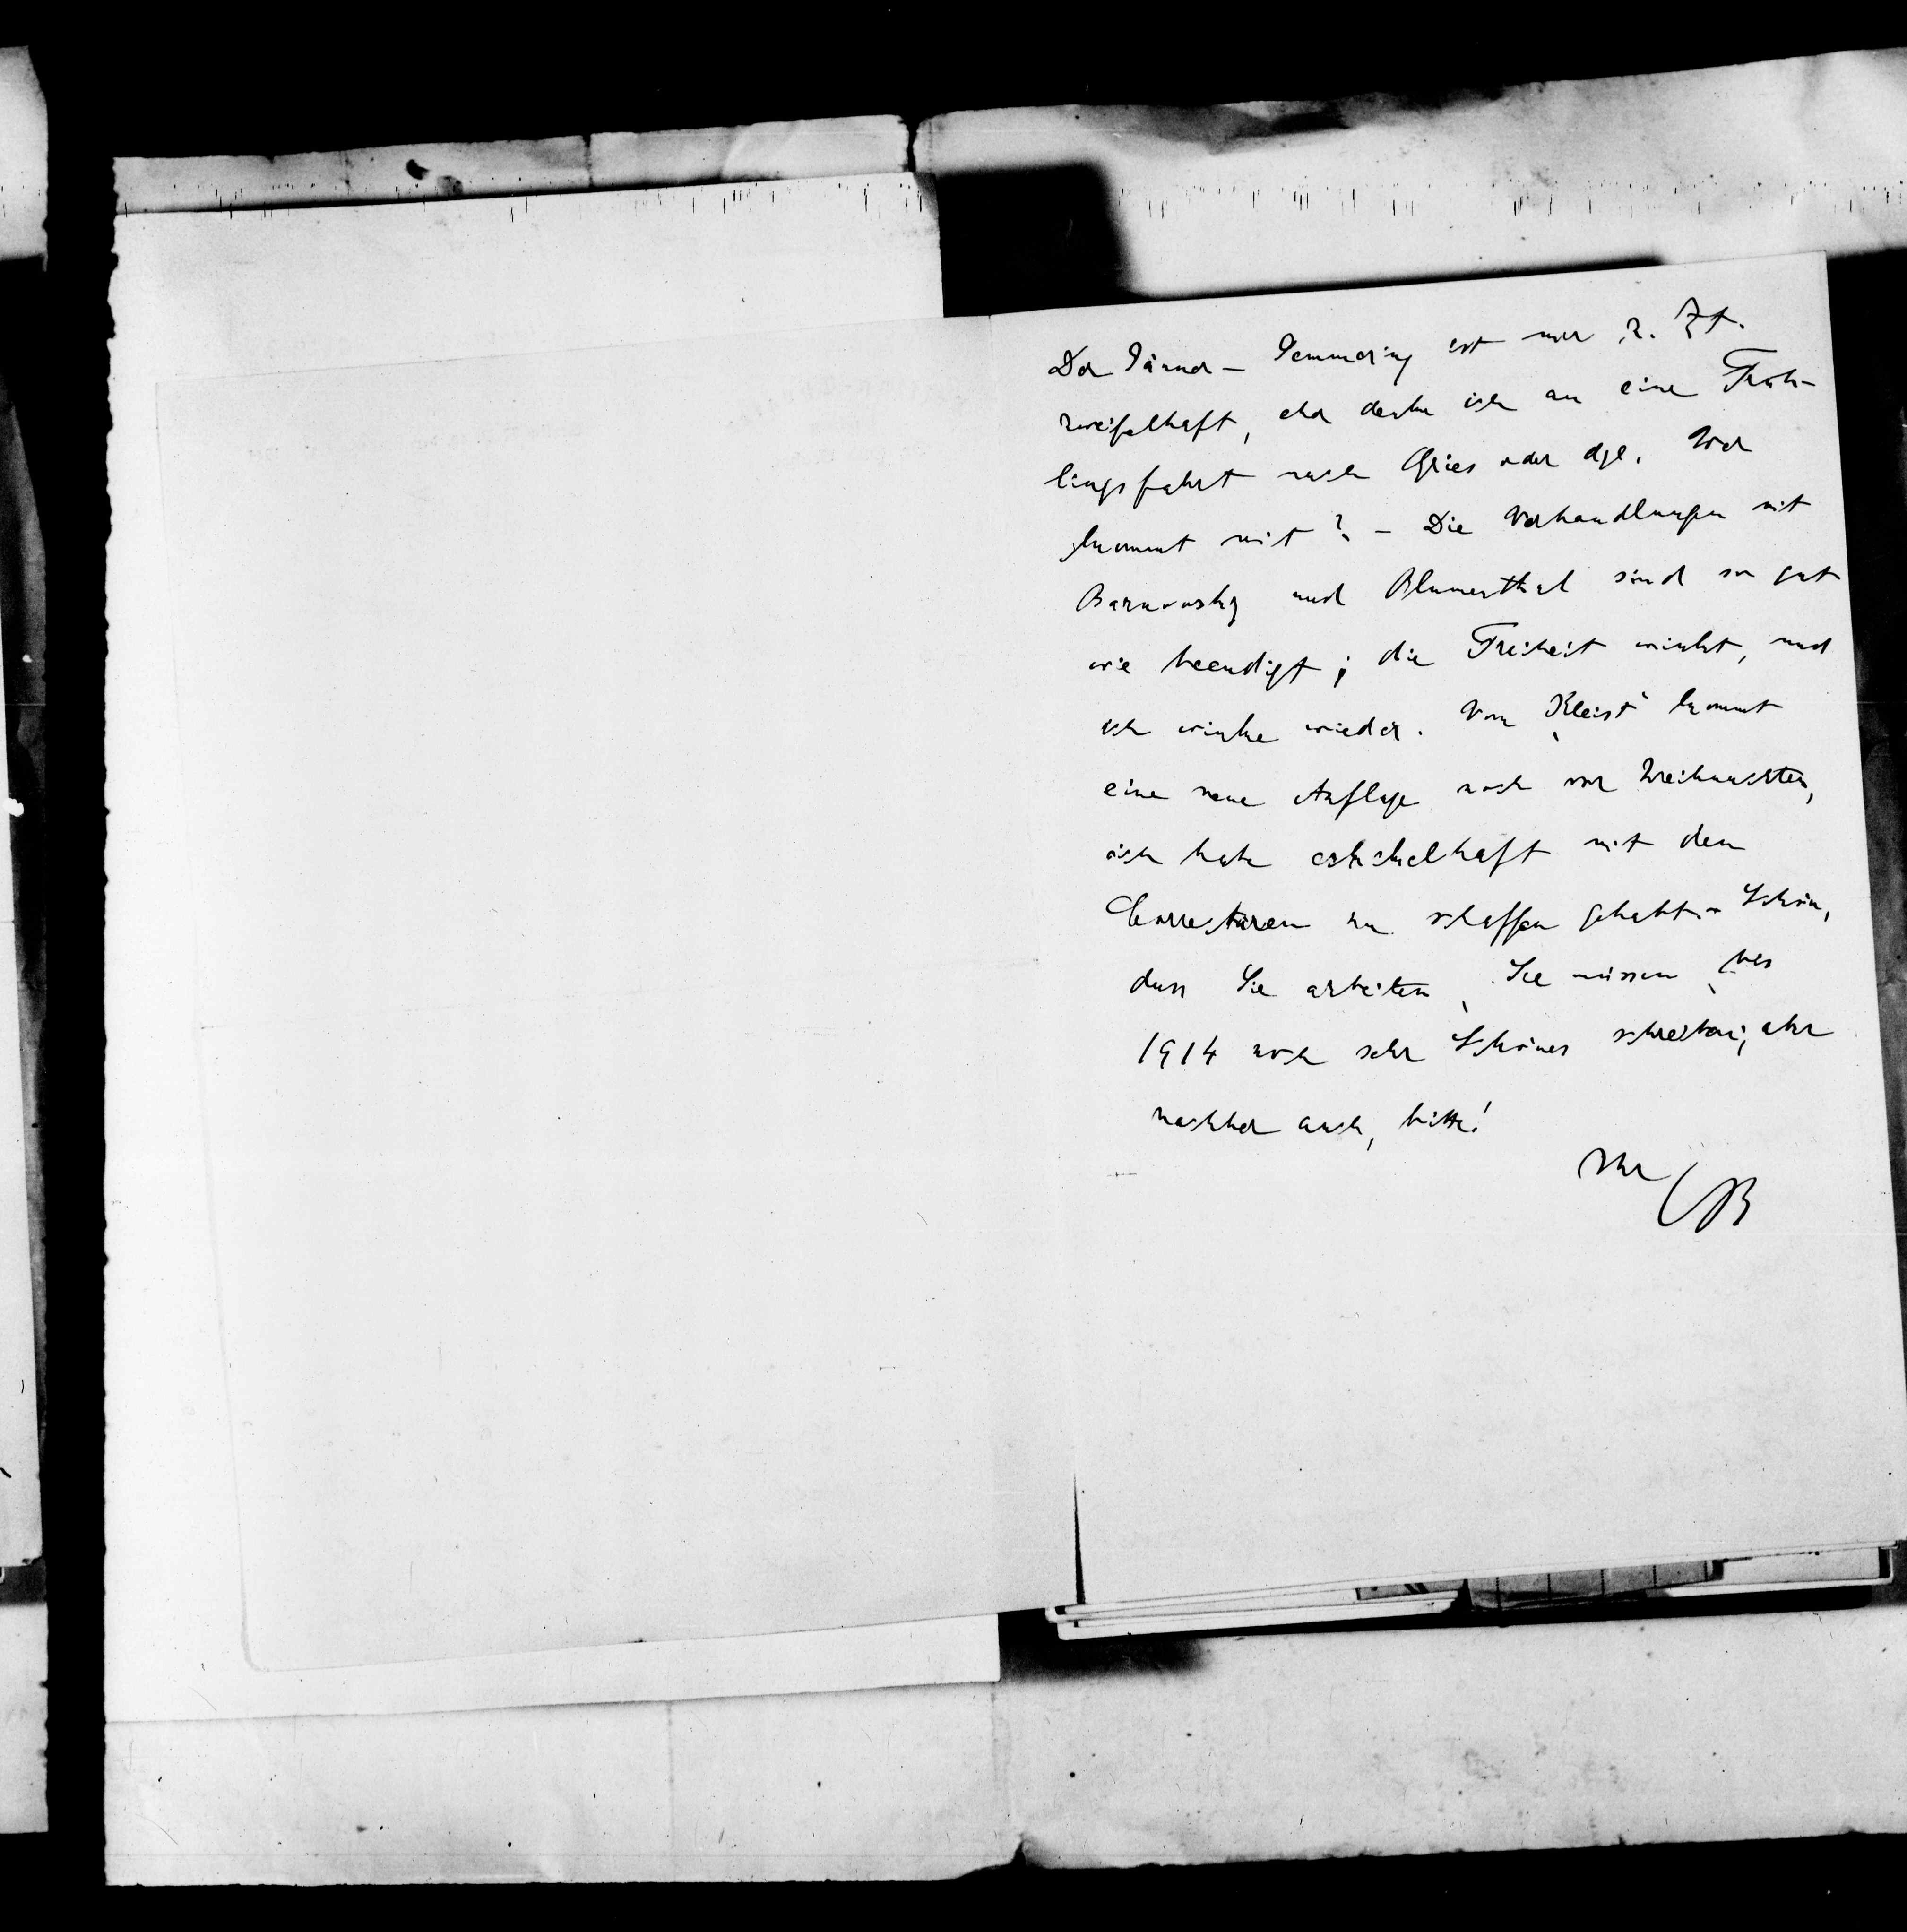 Der Jänner – Semmering ist mir z. Zt.
zweifelhaft, eher denke ich an eine Früh-
lingsfahrt nach Gries oder dgl. Wer
kommt mit? – Die Verhandlungen mit
Barnowsky und Blumenthal sind so gut
wie beendigt; die Freiheit winkt, und
ich winke wieder. Von „Kleist“ kommt
eine neue Auflage noch vor Weihnachten,
ich habe ekelhaft mit den
Correcturen zu schaffen gehabt. – Schön,
dass Sie arbeiten, Sie müssen bis
1914 noch sehr Schönes schreiben; aber
nachher auch, bitte!
Ihr
B